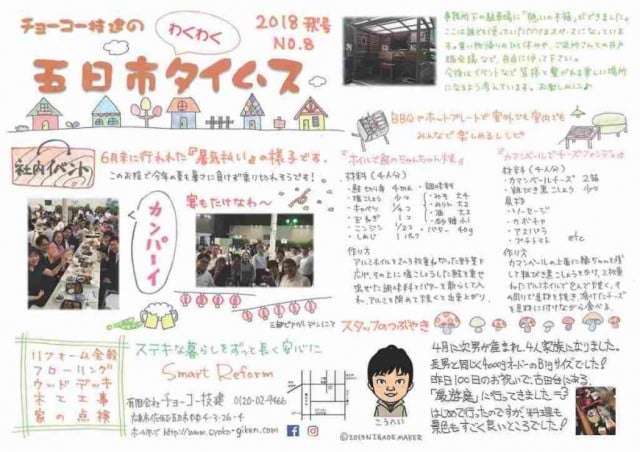 チョーコー技建の
わくわく
2018 秋号
NO.8
五日市タイムス
事務所下の駐車場に「憩いの木箱」ができました。
ここは誰でも使っていただけるスペースになっています。
買い物帰りのひと休みや、ご近所さんとの井戸
端会議など、自由に使って下さい。
今後はイベントなど皆様と繋がれる楽しい場所
になるよう考えています。お楽しみに♪
社内イベント
6月末に行われた『暑気払い』の様子です。
このお陰で今年の夏も暑さに負けず乗り切れそうです!
カンパーイ
宴もたけなわ〜
三越ビアガーデンにて
BBQやホットプレートで室外でも室内でも
みんなで楽しめるレシピ
『ホイルで鮭のちゃんちゃん焼』
材料(4人分)
・鮭切り身 4切れ
・塩こしょう 少々
・キャベツ 1/4コ
・玉ねぎ 1コ
・ニンジン 1/2コ
・しめじ 1パック
・調味料
・みそ 大4
・みりん 大2
・酒 大2
・砂糖 小1
・バター 40g
作り方
アルミホイルを2〜3枚重ねちぎった野菜を
広げ、その上に塩こしょうした鮭を乗せ
混ぜた調味料とバターを散らして入
れ、アルミを閉めて下焼くと出来上がり。
『カマンベールでチーズフォンデュ』
材料(4人分)
・カマンベールチーズ 2箱
・粗びき黒こしょう 少々
具材
・ソーセージ
・カボチャ
・アスパラ
・プチトマト etc
作り方
カマンベールの上面に縁ちゃんを残
して粗びき黒こしょうをかけ、2枚重
ねたアルミホイルで包んで下焼く。そ
の周りで具材を焼き溶けたチーズ
を具材に付けながら食べる。
リフォーム全般
フローリング
ウッドデッキ
木工工事
家の点検
ステキな暮らしをずっと長く安心に
Smart Reform
有限会社チョーコー技建 0120-02-9466
広島市佐伯区五日市中央4-3-26-4
ホームページ http://www.cyoko-giken.com
スタッフのつぶやき
こうへい
4月に次男が産まれ、4人家族になりました。
長男と同じく4000gオーバーのBigサイズでした!
昨日100日のお祝いで、古田台にある、
「厳遊庭」に行ってきました=3
はじめて行ったのですが、料理も
景色もすごく良いところでした!
©2013 NIGAOE MAKER